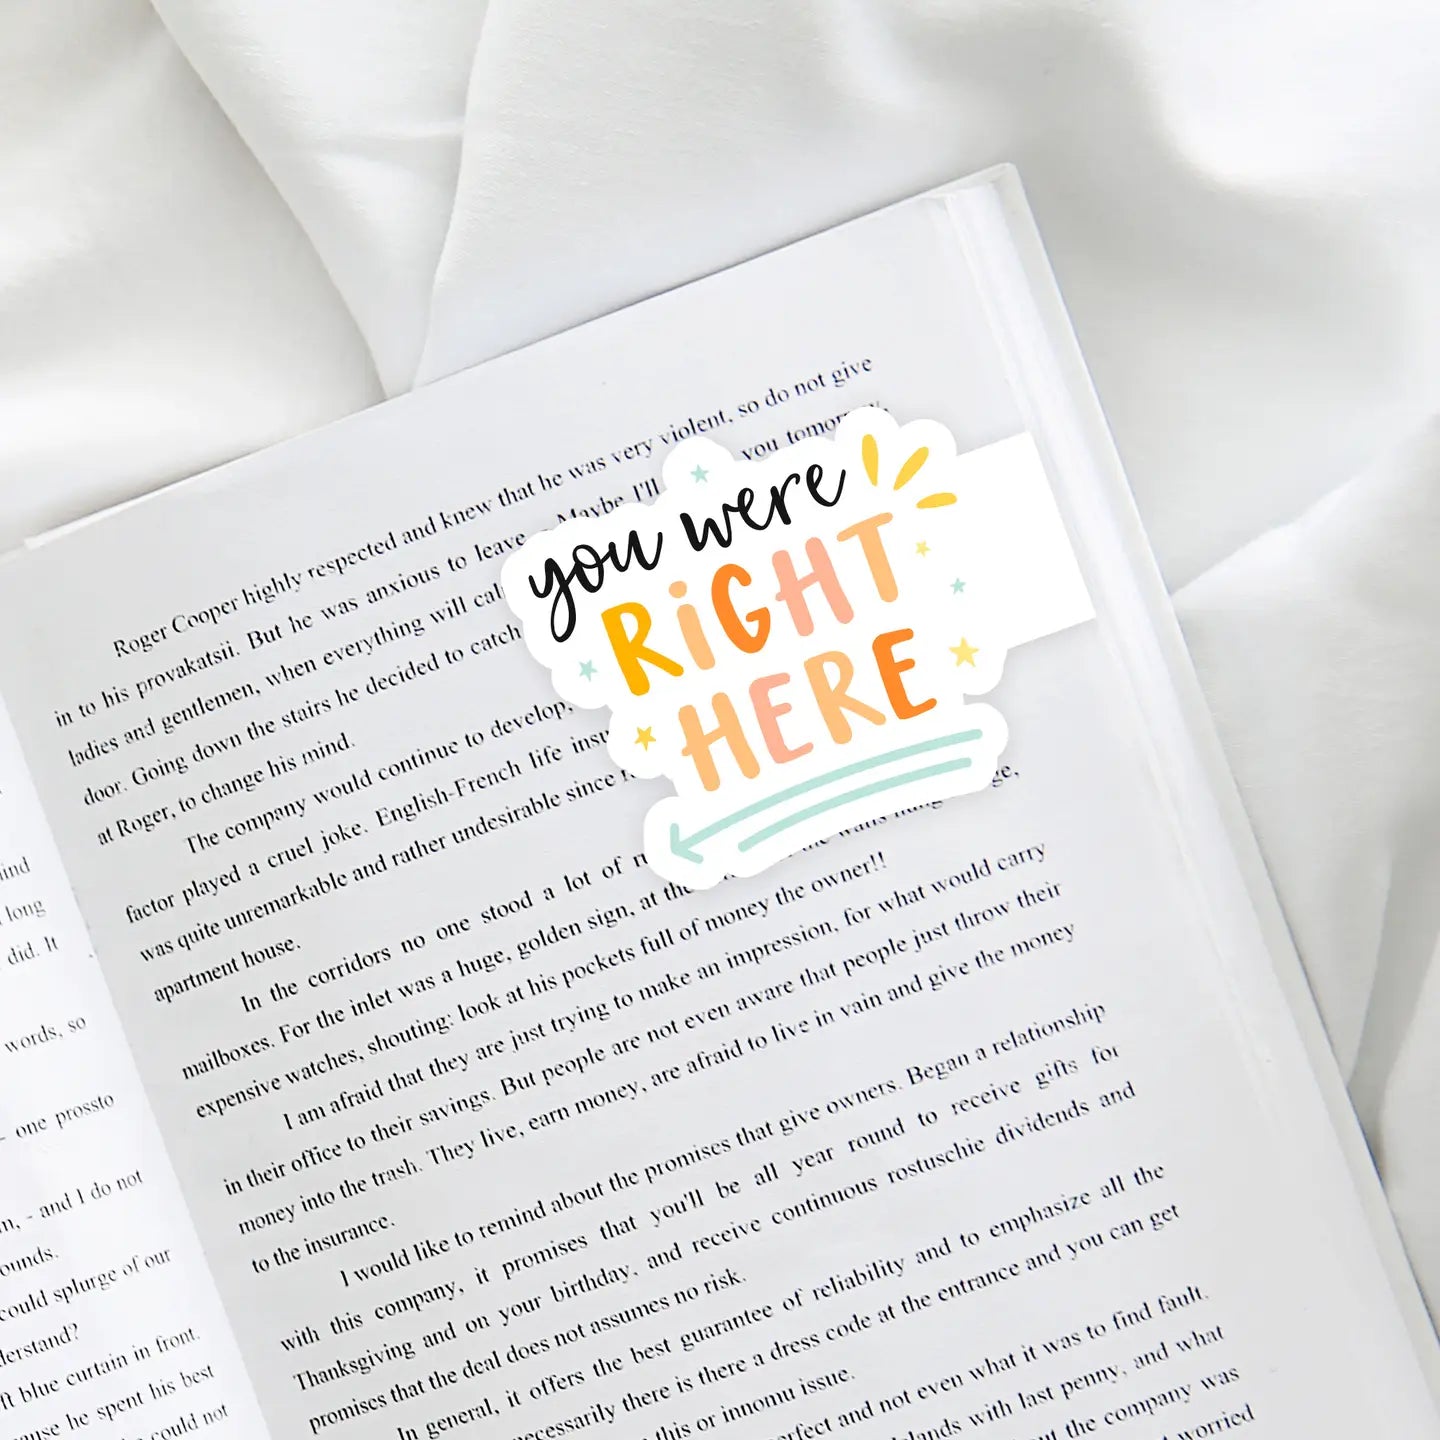 you were
RiGHT
HERE
ind
long
did. It
words, so
- one prossto
n, - and I do not
ounds.
could splurge of our
derstand?
ft blue curtain in front.
ause he spent his best
could not
Roger Cooper highly respected and knew that he was very violent, so do not give
in to his provakatsii. But he was anxious to leave. Maybe I'll you tomorrow,
ladies and gentlemen, when everything will cal
door. Going down the stairs he decided to catch
at Roger, to change his mind.
The company would continue to develop,
factor played a cruel joke. English-French life insu
was quite unremarkable and rather undesirable since
apartment house.
In the corridors no one stood a lot of
mailboxes. For the inlet was a huge, golden sign, at the the walls
expensive watches, shouting: look at his pockets full of money the owner!!
I am afraid that they are just trying to make an impression, for what would carry
in their office to their savings. But people are not even aware that people just throw their
money into the trash. They live, earn money, are afraid to live in vain and give the money
to the insurance.
I would like to remind about the promises that give owners. Began a relationship
with this company, it promises that you'll be all year round to receive gifts for
Thanksgiving and on your birthday, and receive continuous rostuschie dividends and
promises that the deal does not assumes no risk.
In general, it offers the best guarantee of reliability and to emphasize all the
necessarily there is there a dress code at the entrance and you can get
this or innomu issue.
rfect and not even what it was to find fault.
lands with last penny, and what
ut the company was
worried